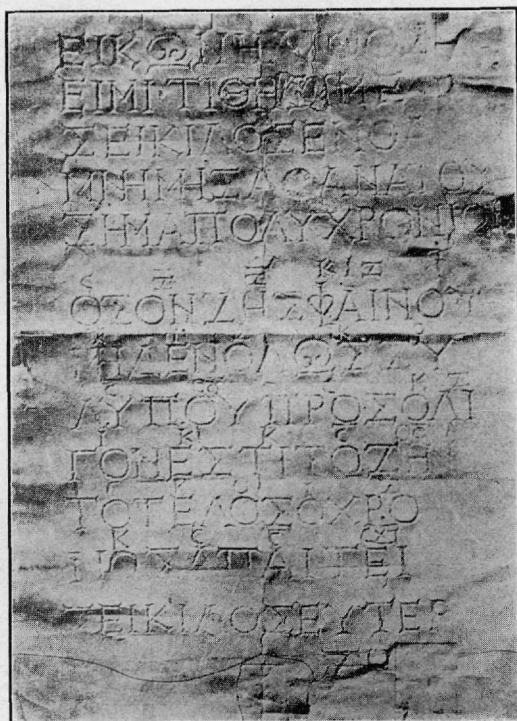 ΕΙΚΩΝΗΛΙΘΟΣ
ΕΙΜΙΤΙΘΗΣΙΜΕ
ΣΕΙΚΙΛΟΣΕΝΘΑ
ΜΝΗΜΗΣΑΘΑΝΑΤΟΥ
ΣΗΜΑΠΟΛΥΧΡΟΝΙΟΝ
C Ζ Ζ ΚΙΖ Ι
ΟΣΟΝΖΗΣΦΑΙΝΟΥ
ΜΗΔΕΝΟΛΩΣΣΥ
Κ Ζ
ΛΥΠΟΥΠΡΟΣΟΛΙ
Ι ΚΙ Κ C
ΓΟΝΕΣΤΙΤΟΖΗ
ΤΟΤΕΛΟΣΟΧΡΟ
Κ C C
ΝΟΣΑΠΑΙΤΕΙ
ΣΕΙΚΙΛΟΣΕΥΤΕΡ
ΖΗ